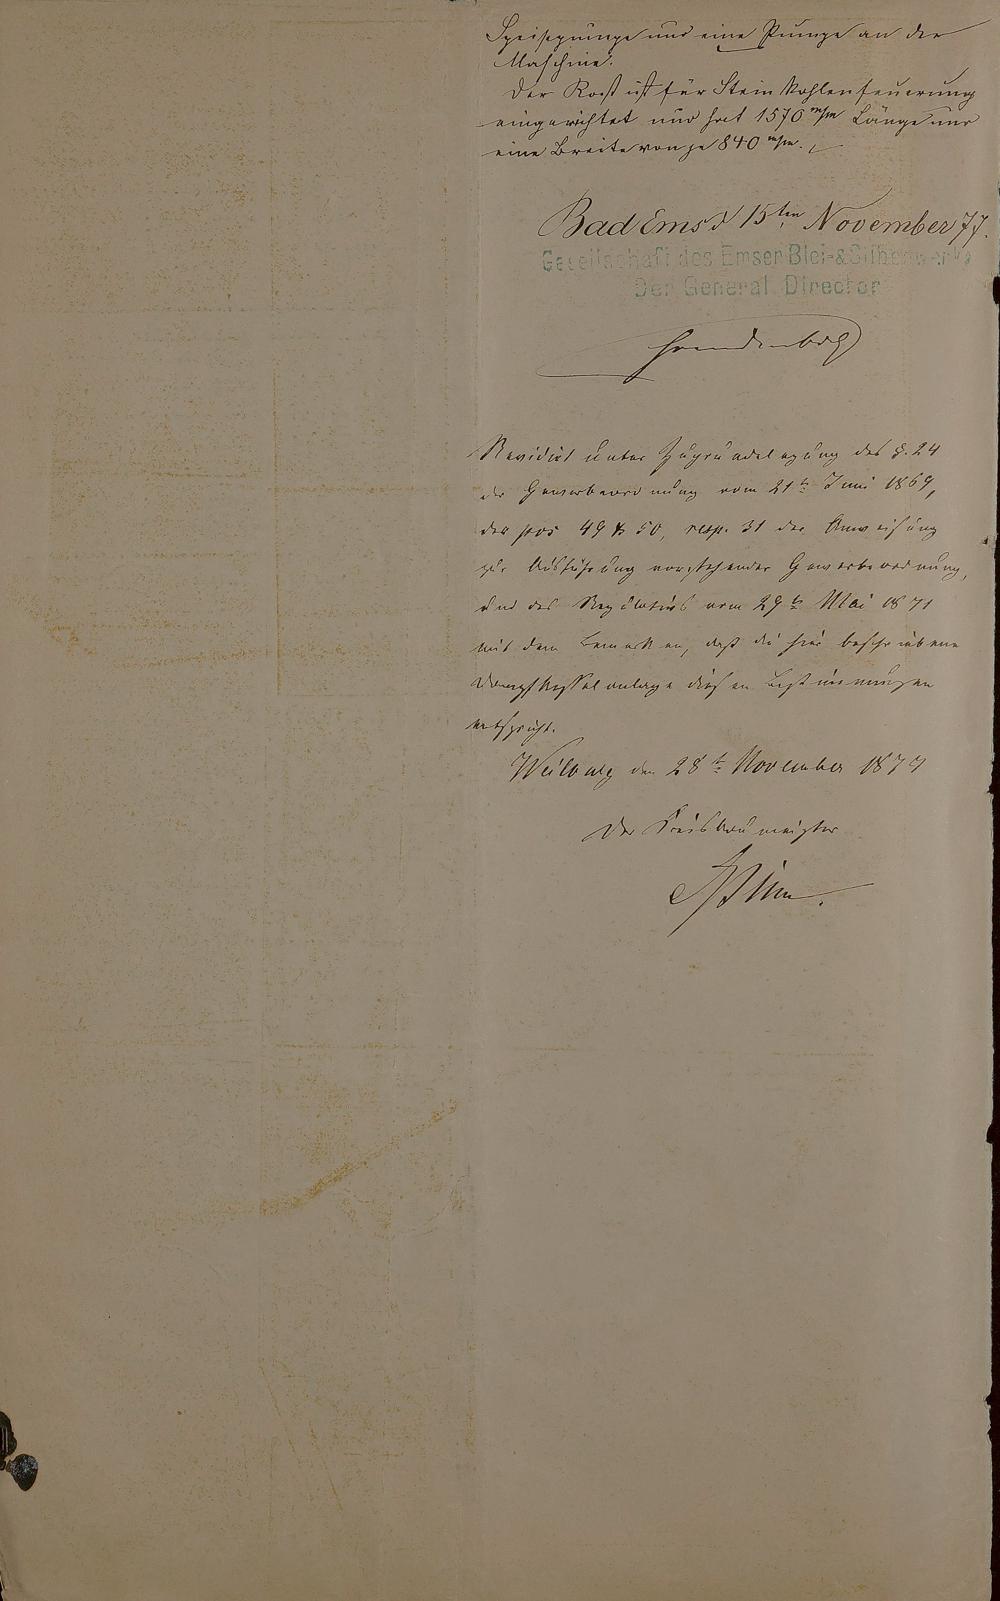 Speisepumpe und eine Pumpe an der
Maschine.
Der Rost ist für Steinkohlenfeuerung
eingerichtet und hat 1570 m/m Länge und
eine Breite von je 840 m/m.
Bad Ems d 15ten November 77.
Gesellschaft des Emser Blei- & Silberwerks
Der General Director
Revidirt unter Zugrundelegung des §. 24
der Gewerbeordnung vom 21t Juni 1869,
der pos 49 & 50, resp. 31 der Anweisung
zur Ausführung vorstehender Gewerbeordnung,
und des Regulativs vom 29t Mai 1871
mit dem Bemerken, daß die hier beschriebene
Dampfkesselanlage diesen Bestimmungen
entspricht.
Weilburg den 28t November 1877
Der Kreisbaumeister